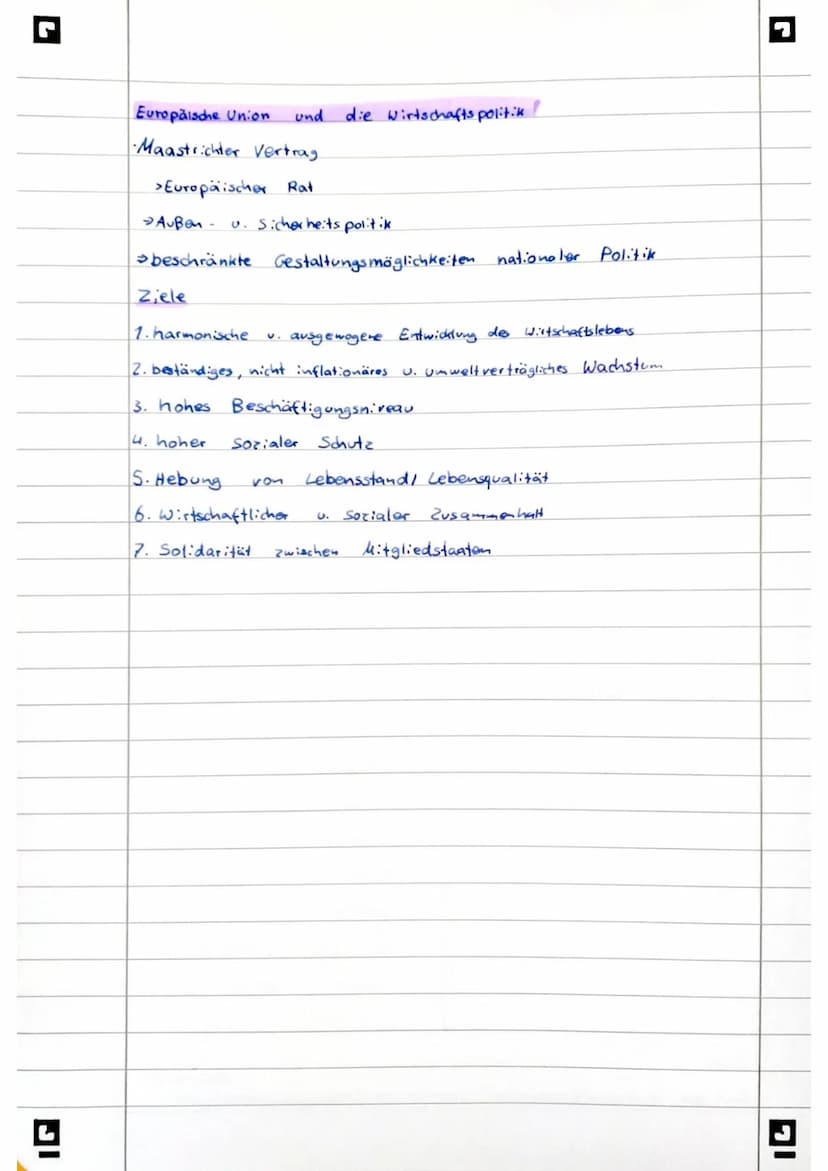 Europäische Union und die Wirtschaftspolitik!
·Maastrichter Vertrag
>Europäischer Rat
→Außen- u. Sicherheitspolitik
⇒beschränkte Gestaltungsmöglichkeiten nationaler Politik
Ziele
1. harmonische u. ausgewogene Entwicklung des Wirtschaftslebens
2. beständiges, nicht inflationäres u. umweltverträgliches Wachstum
3. hohes Beschäftigungsniveau
4. hoher sozialer Schutz
5. Hebung von Lebensstand/ Lebensqualität
6. Wirtschaftlicher u. sozialer Zusammenhalt
7. Solidarität zwischen Mitgliedstaaten